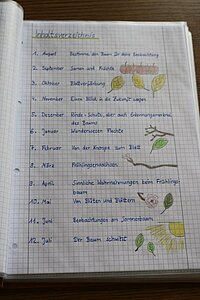 Inhaltsverzeichnis
1. August Bestimme den Baum für deine Beobachtung
2. September Samen und Früchte
3. Oktober Blattverfärbung
4. November Einen Blick in die Zukunft wagen
5. Dezember Rinde = Schutz, aber auch Erkennungsmerkmal
des Baums
6. Januar Wunderwesen Flechte
7. Februar Von der Knospe zum Blatt
8. März Frühlingserwachen
9. April Sinnliche Wahrnehmungen beim Frühlings-
baum
10. Mai Von Blüten und Blättern
11. Juni Beobachtungen am Sommerbaum
12. Juli Der Baum schwitzt